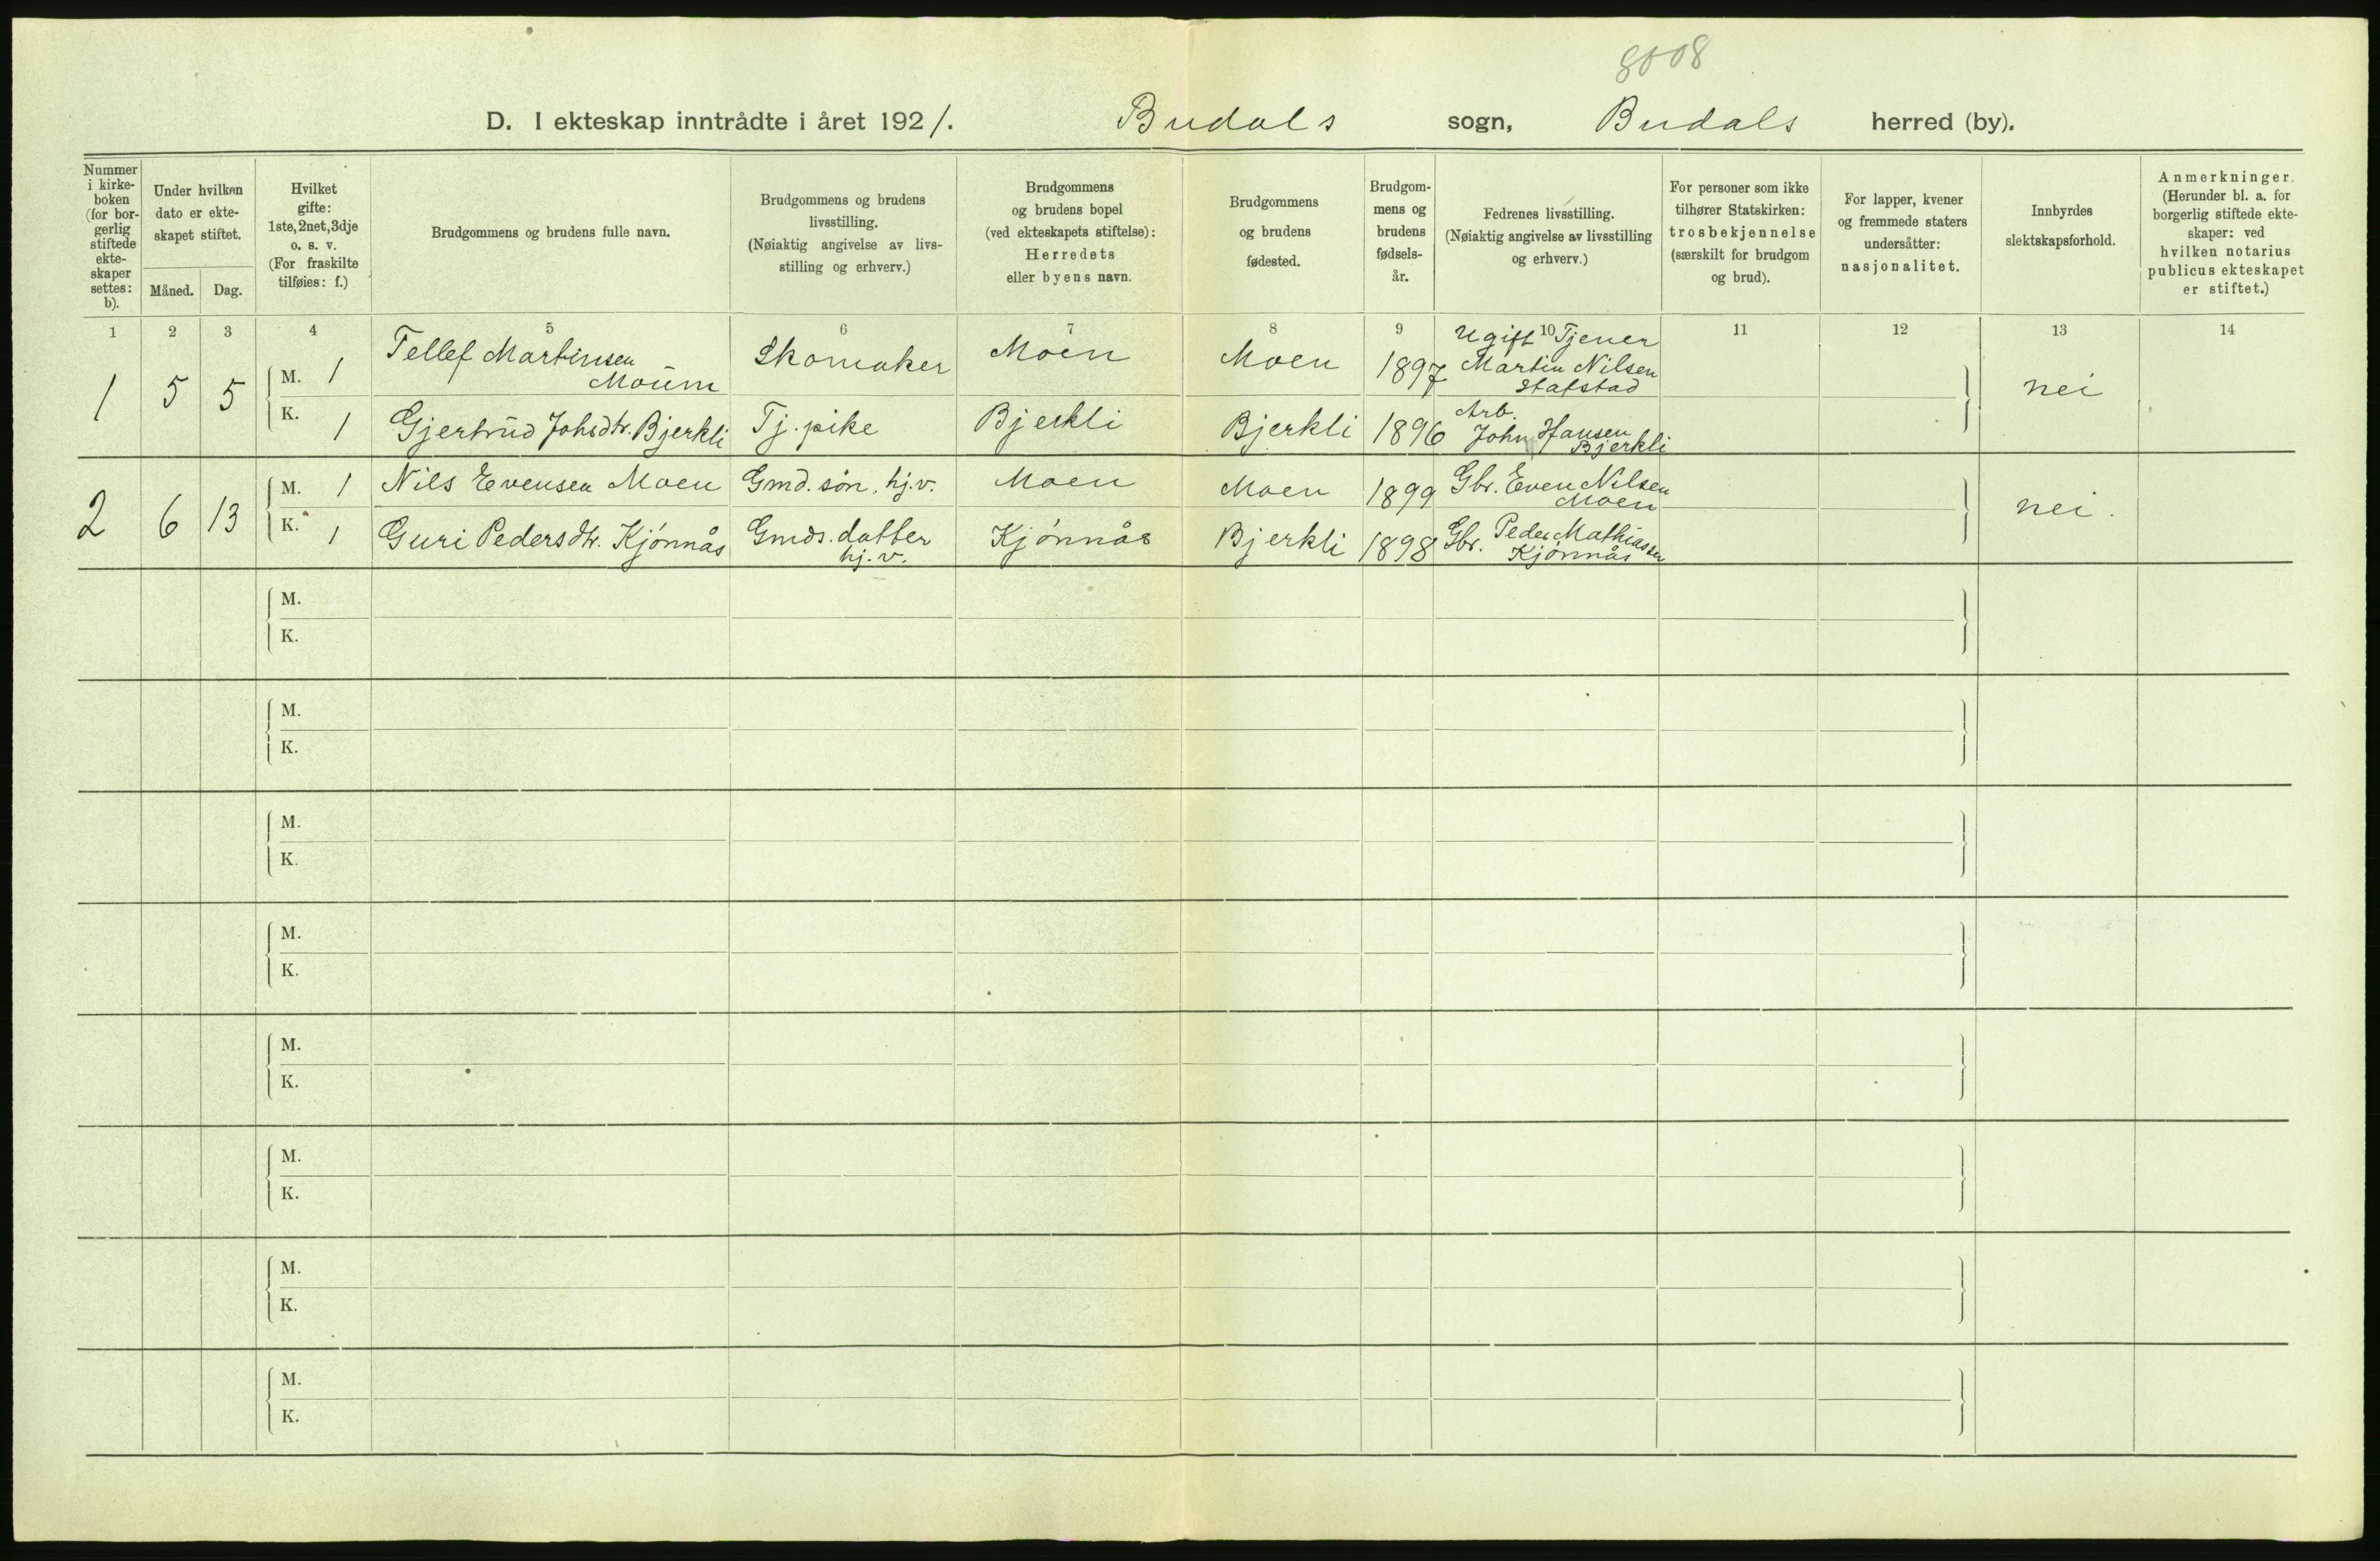 8008
D. I ekteskap inntrådte i året 1921. Budals sogn, Budals herred (by).
Nummer i kirkeboken (for borgerlig stiftede ekteskaper settes: b).
Under hvilken dato er ekteskapet stiftet.
Måned. Dag.
Hvilket gifte: 1ste, 2net, 3dje o. s. v. (For fraskilte tilføies: f.)
Brudgommens og brudens fulle navn.
Brudgommens og brudens livsstilling. (Nøiaktig angivelse av livsstilling og erhverv.)
Brudgommens og brudens bopel (ved ekteskapets stiftelse): Herredets eller byens navn.
Brudgommens og brudens fødested.
Brudgommens og brudens fødselsår.
Fedrenes livsstilling. (Nøiaktig angivelse av livsstilling og erhverv.)
For personer som ikke tilhører Statskirken: trosbekjennelse (særskilt for brudgom og brud).
For lapper, kvener og fremmede staters undersåtter: nasjonalitet.
Innbyrdes slektskapsforhold.
Anmerkninger. (Herunder bl. a. for borgerlig stiftede ekteskaper: ved hvilken notarius publicus ekteskapet er stiftet.)
1 2 3 4 5 6 7 8 9 10 11 12 13 14
1 5 5 M. 1 Tellef Martinsen Moum Skomaker Moen Moen 1897 Ugift Tjener Martin Nilsen Stafstad nei
K. 1 Gjertrud Johsdtr. Bjerkli Tj. pike Bjerkli Bjerkli 1896 Arb. John Hansen Bjerkli
2 6 13 M. 1 Nils Evensen Moen Gmd. søn, hj.v. Moen Moen 1899 Gbr. Even Nilsen Moen nei.
K. 1 Guri Pedersdtr. Kjønnås Gmds. datter hj.v. Kjønnås Bjerkli 1898 Gbr. Peder Mathiassen Kjønnås
M.
K.
M.
K.
M.
K.
M.
K.
M.
K.
M.
K.
M.
K.
M.
K.